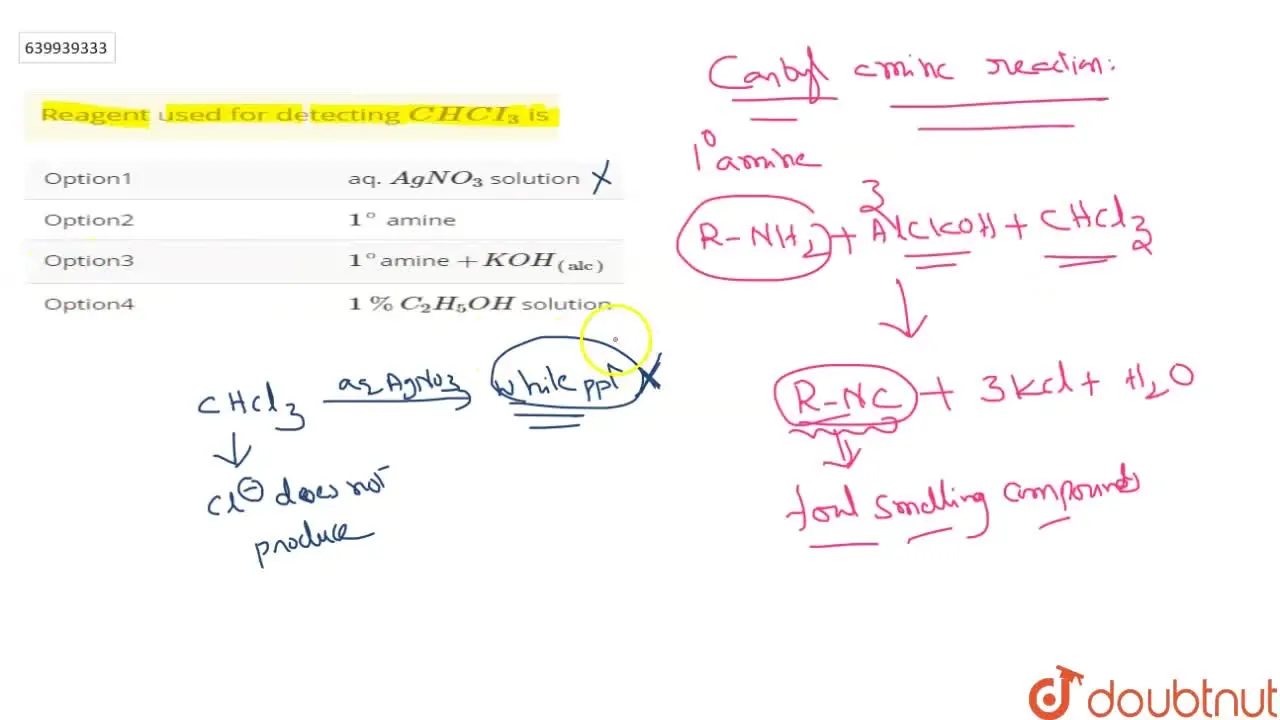 639939333
Reagent used for detecting CHCl₃ is
Option1 aq. AgNO₃ solution X
Option2 1° amine
Option3 1° amine + KOH₍alc₎
Option4 1 % C₂H₅OH solution
CHCl₃ aq AgNO₃ white ppt X
Cl⊖ does not
produce
Carbyl amine reaction:
1⁰ amine
R-NH₂ + 3 AlcKOH + CHCl₃
R-NC + 3KCl + H₂O
foul smelling compounds
doubtnut